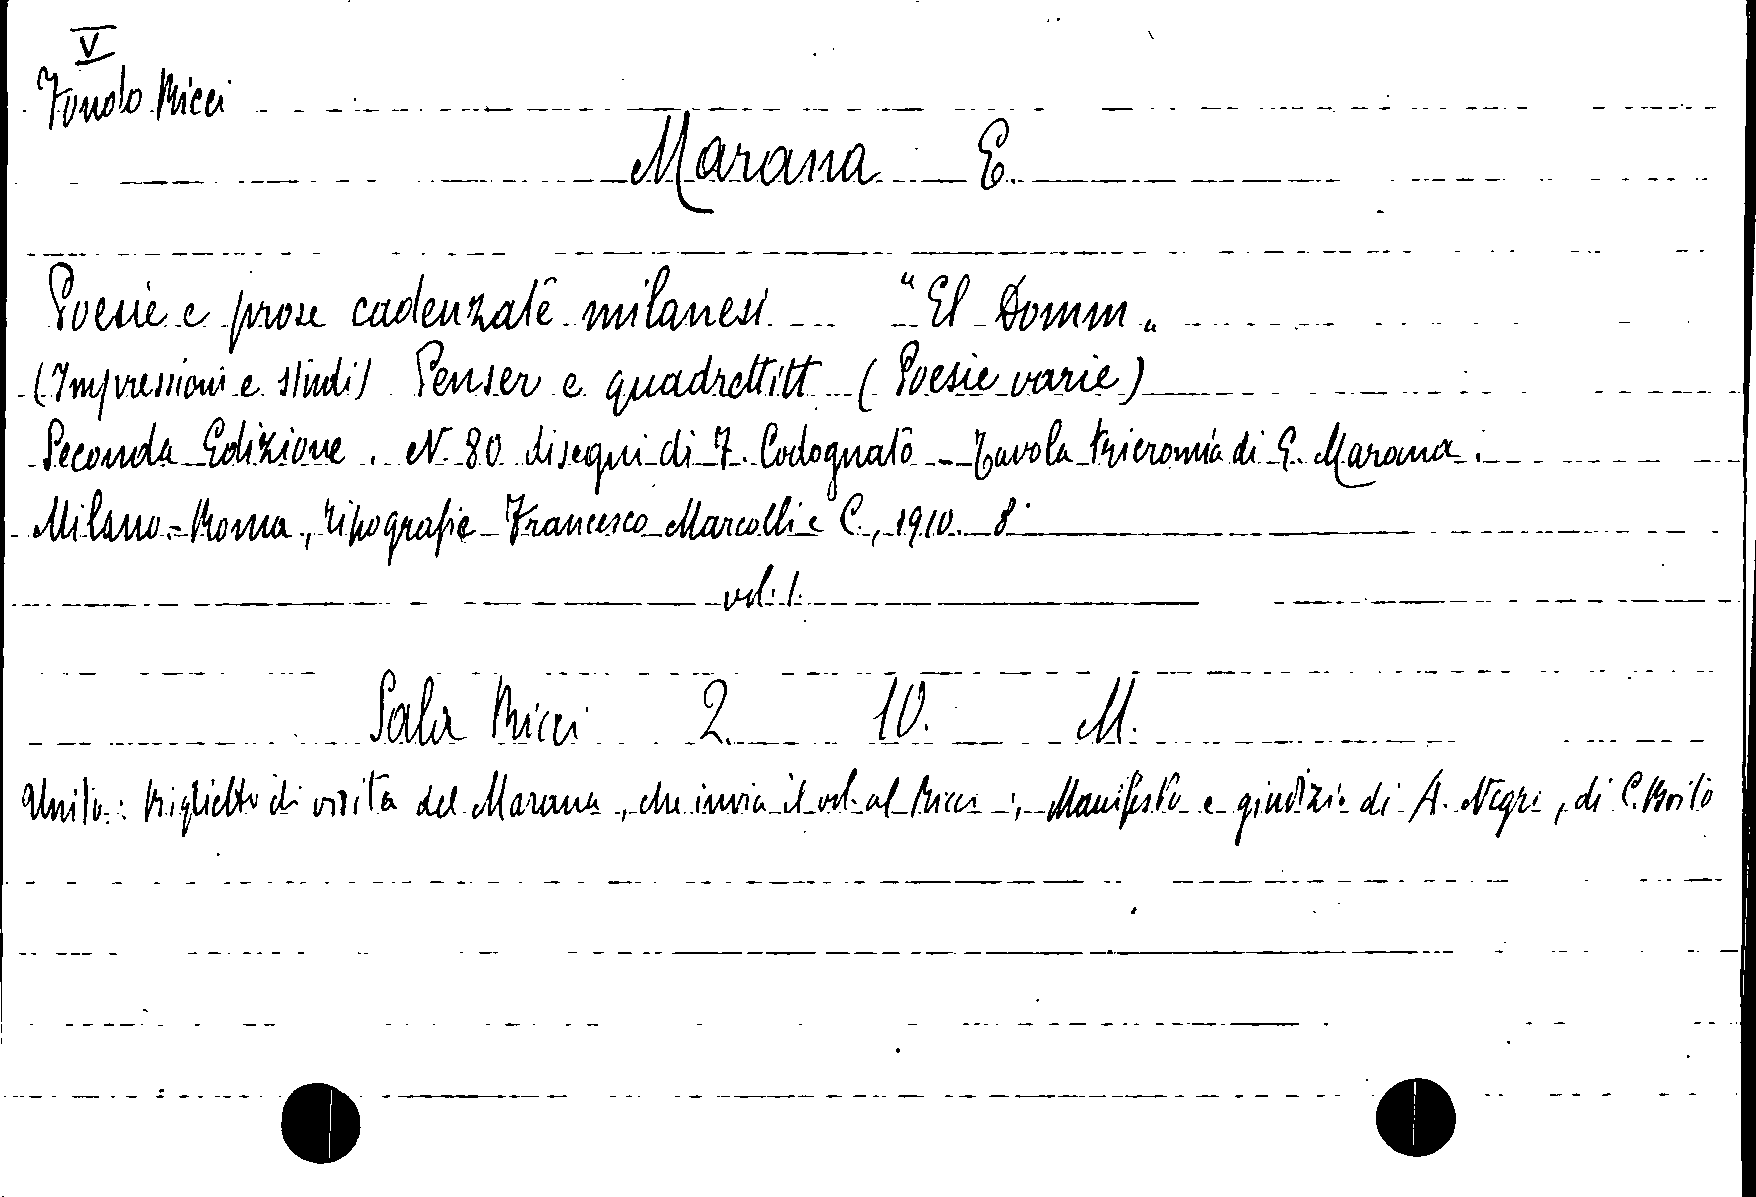 V
Fondo Ricci
Marana E.
Poesie e prose cadenzate milanesi "El Domm"
(Impressioni e studi) Penser e quadrettitt (Poesie varie)
Seconda Edizione. N. 80 disegni di F. Codognato - Tavola tricromia di E. Marana.
Milano-Roma, Tipografie Francesco Marcolli e C., 1910. 8°
vol. 1.
Sala Ricci 2. 10. M.
Unito: Biglietto di visita del Marana, che invia il vol. al Ricci; Manifesto e giudizio di A. Negri, di C. Boito